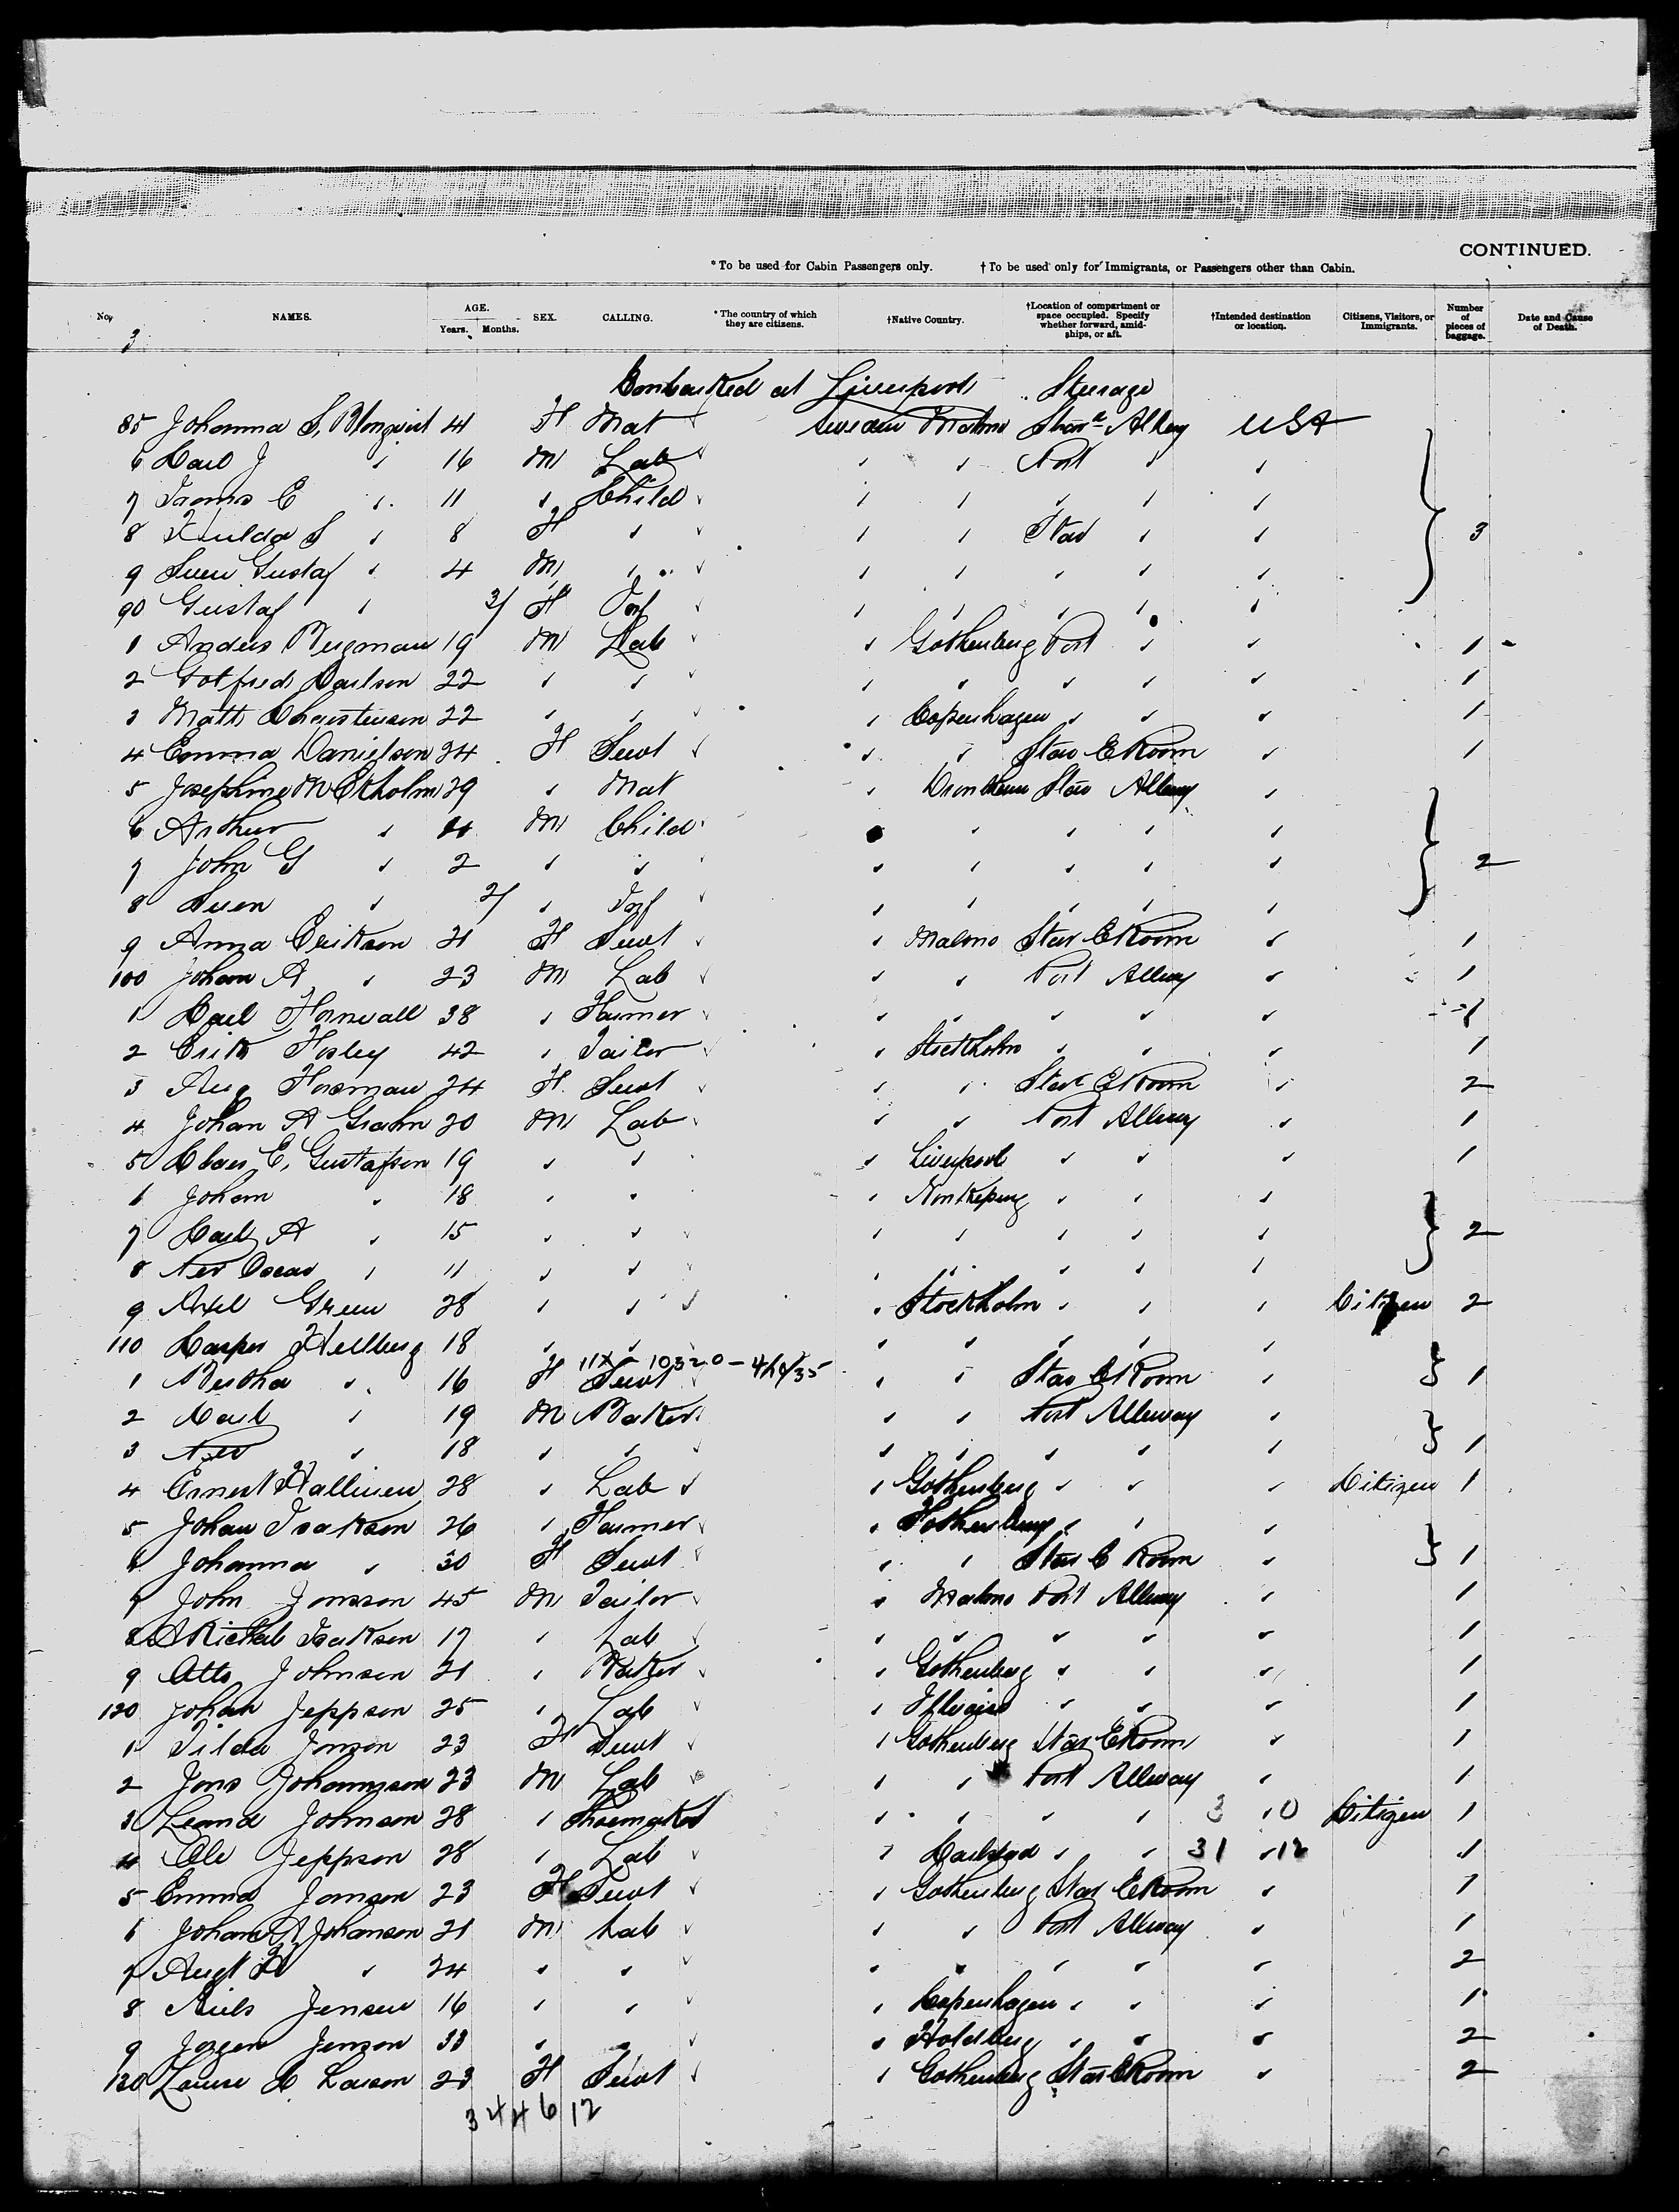 CONTINUED.
* To be used for Cabin Passengers only. † To be used only for Immigrants, or Passengers other than Cabin.
No. NAMES. AGE. Years. Months. SEX. CALLING. * The country of which they are citizens. † Native Country. † Location of compartment or space occupied. Specify whether forward, amidships, or aft. † Intended destination or location. Citizens, Visitors, or Immigrants. Number of pieces of baggage. Date and Cause of Death.
3
Embarked at Liverpool Steerage
85 Johanna S, Blomquist 41 F Mat Sweden Malmo Star Alley USA
6 Carl J " 16 M Lab " " Port " "
7 E " 11 " Child " " " " "
8 Hulda S " 8 F " " " Star " " 3
9 Sven Gustaf " 4 M " " " " " "
90 Gustaf " 3/ F Inf " " " " "
1 Anders Bergman 19 M Lab " Gothenberg Port " " 1
2 Gotfred Carlson 22 " " " " " " " 1
3 Matt Christensen 22 " " " Copenhagen " " " 1
4 Emma Danielson 24 F Servt " " Star E Room " 1
5 Josephine M Ekholm 29 " Mat " Drontheim Star Alleway "
6 Arthur " 4 M Child " " " " "
7 John G " 2 " " " " " " " 2
8 Sven " 2/ " Inf " " " " "
9 Anna Erikson 21 F Servt " Malmo Star E Room " 1
100 Johan A " 23 M Lab " " Port Alleway " 1
1 Carl Hornwall 38 " Farmer " " " " " 1
2 Erik Hosley 42 " Tailor " Stockholm " " " 1
3 Aug Horsman 24 F Servt " " Star E Room " 2
4 Johan A Grahn 20 M Lab " " Port Alleway " 1
5 Claes E, Gustafson 19 " " " Liverpool " " " 1
6 Johan " 18 " " " Norrkeping " " "
7 Carl A " 15 " " " " " " " 2
8 Per Oscar " 11 " " " " " " "
9 Axel Green 28 " " " Stockholm " " " Citizen 2
110 Casper Hellberg 18 " " " " " " "
11X - 10320 - 4/24/35
1 Bertha " 16 F Servt " " Star E Room " 1
2 Carl " 19 M Baker " " Port Alleway "
3 Per " 18 " " " " " " " 1
4 Ernest Hallinen 28 " Lab " Gothenberg " " " Citizen 1
5 Johan Isakson 26 " Farmer " Gothenberg " " "
6 Johanna " 30 F Servt " " Star E Room " 1
7 John Jonsson 45 M Tailor " Malmo Port Alleway " 1
8 Isakson 17 " Lab " " " " " 1
9 Otto Johnson 21 " Baker " Gothenberg " " " 1
120 Johan Jeppson 25 " Lab " " " " 1
1 Tilda Jonson 23 F Servt " Gothenberg Star E Room " 1
2 Jons Johannson 23 M Lab " " Port Alleway " 1
3 Johnson 28 " Shoemaker " " " " 3 10 Citizen 1
4 Ole Jeppson 28 " Lab " Carlstad " " 31 12 1
5 Emma Jonsson 23 F Servt " Gothenberg Star E Room " 1
6 Johan A Johanson 21 M Lab " " Port Alleway " 1
7 Augt " 24 " " " " " " " 2
8 Niels Jensen 16 " " " Copenhagen " " " 1
9 Jorgen Jenson 33 " " " Holdberg " " " 2
130 Louise C Larson 23 F Servt " Gothenberg Star E Room " 2
3 4 4 6 12